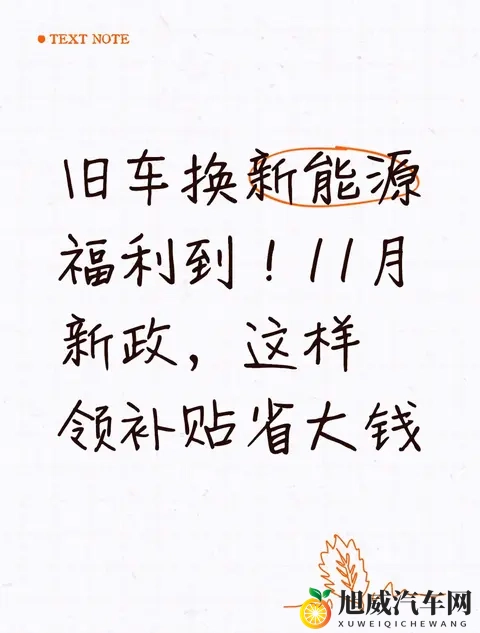 TEXT NOTE
旧车换新能源
福利到！11月
新政，这样
领补贴省大钱
旭威汽车网
XUWEIQICHEWANG